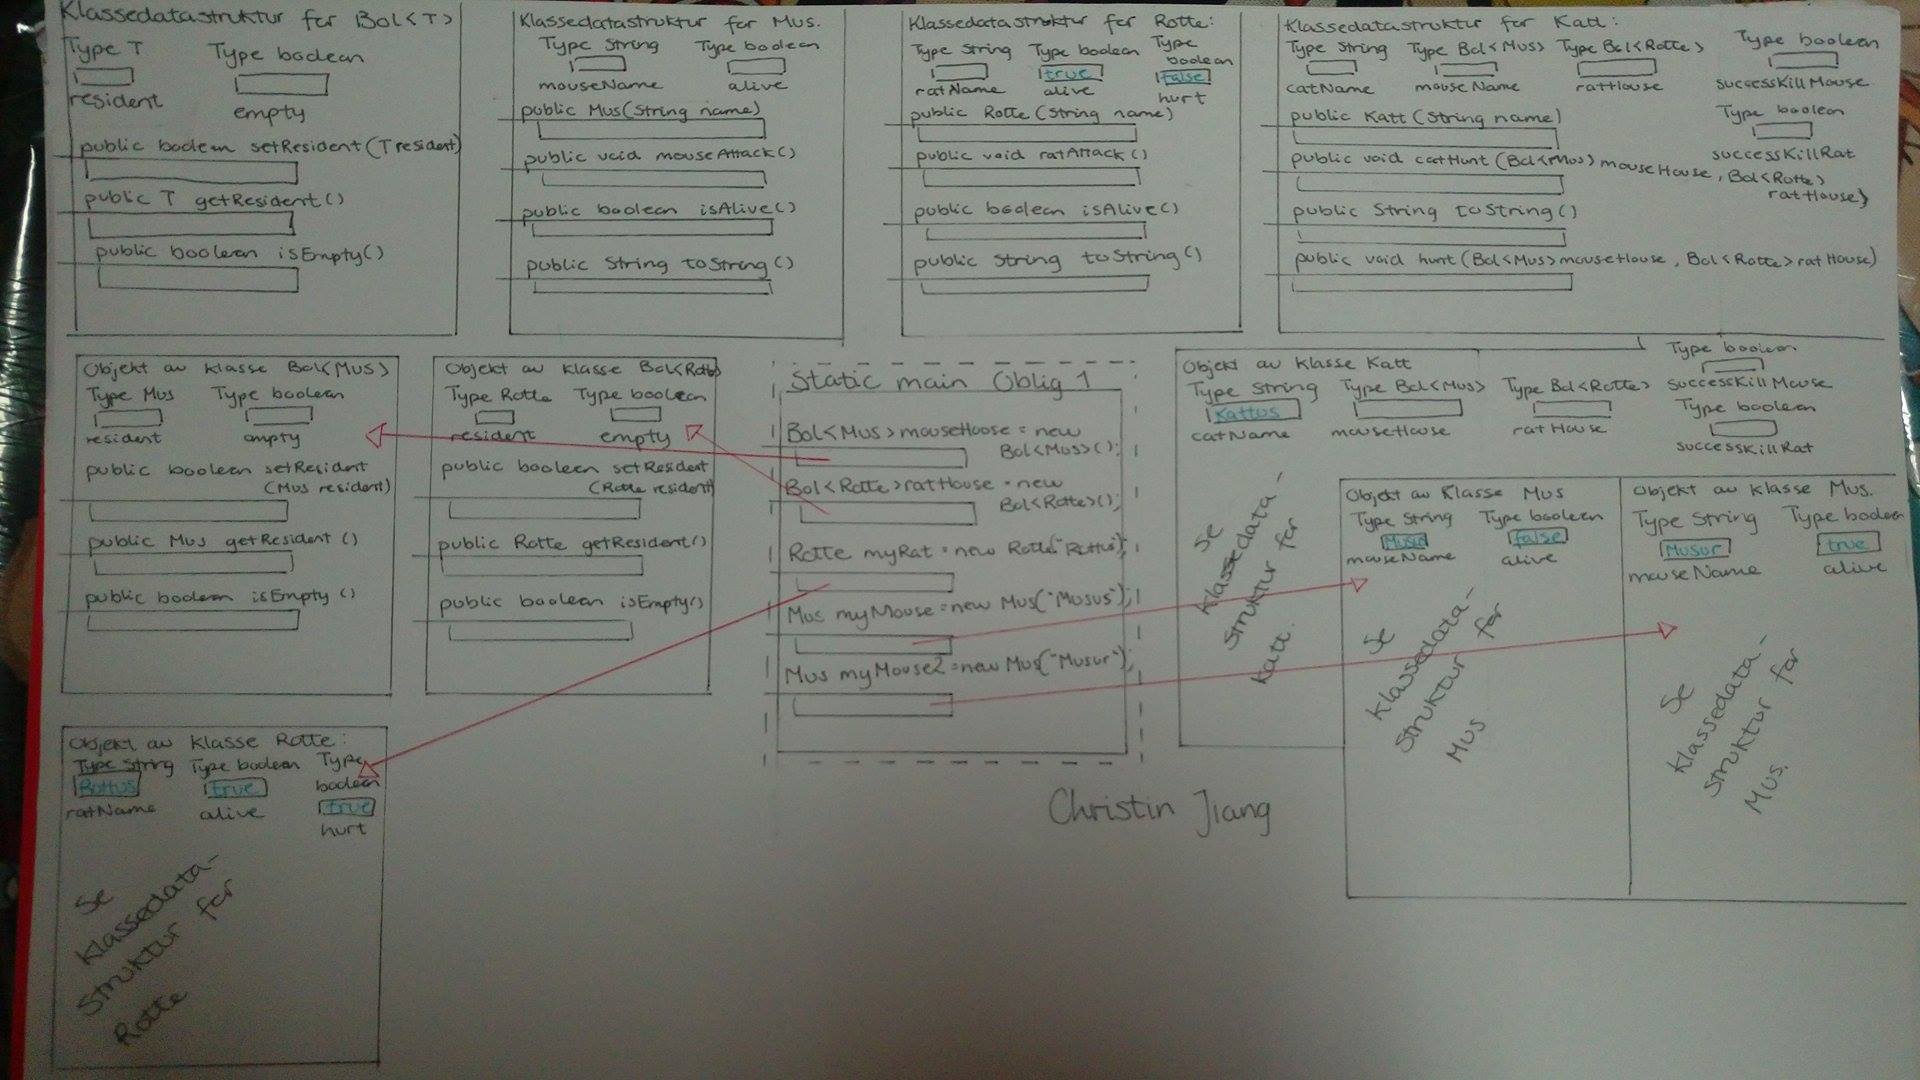 Klassedatastruktur for Bol<T>
Type T
Type boolean
resident
empty
public boolean setResident(T resident)
public T getResident()
public boolean isEmpty()
Klassedatastruktur for Mus.
Type String
Type boolean
mouseName
alive
public Mus(String name)
public void mouseAttack()
public boolean isAlive()
public String toString()
Klassedatastruktur for Rotte:
Type String
Type boolean
Type
boolean
true
false
ratName
alive
hurt
public Rotte (String name)
public void ratAttack()
public boolean isAlive()
public String toString()
Klassedatastruktur for Katt:
Type String
Type Bol<Mus>
Type Bol<Rotte>
Type boolean
catName
mouseName
ratHouse
successKillMouse
Type boolean
successKillRat
public Katt (String name)
public void catHunt (Bol<Mus> mouseHouse, Bol<Rotte>
ratHouse)
public String toString()
public void hunt (Bol<Mus> mouseHouse, Bol<Rotte> ratHouse)
Objekt av klasse Bol<Mus>
Type Mus
Type boolean
resident
empty
public boolean setResident
(Mus resident)
public Mus getResident ()
public boolean isEmpty ()
Objekt av klasse Bol<Rotte>
Type Rotte
Type boolean
resident
empty
public boolean setResident
(Rotte resident)
public Rotte getResident()
public boolean isEmpty()
Static main Oblig 1
Bol<Mus> mouseHouse = new
Bol<Mus>();
Bol<Rotte> ratHouse = new
Bol<Rotte>();
Rotte myRat = new Rotte("Rottus");
Mus myMouse = new Mus("Musus");
Mus myMouse2 = new Mus("Musur");
Objekt av klasse Katt
Type String
Type Bol<Mus>
Type Bol<Rotte>
Type boolean
Kattus
catName
mouseHouse
ratHouse
successKillMouse
Type boolean
successKillRat
Se
klassedata-
struktur for
katt.
Objekt av klasse Mus
Type String
Type boolean
false
mouseName
alive
Se
klassedata-
struktur for
Mus
Objekt av klasse Mus.
Type String
Type boolean
Musur
true
mouseName
alive
Se
klassedata-
struktur for
Mus.
Objekt av klasse Rotte:
Type String
Type boolean
Type
boolean
Rottus
true
true
ratName
alive
hurt
Se
klassedata-
struktur for
Rotte
Christin Jiang